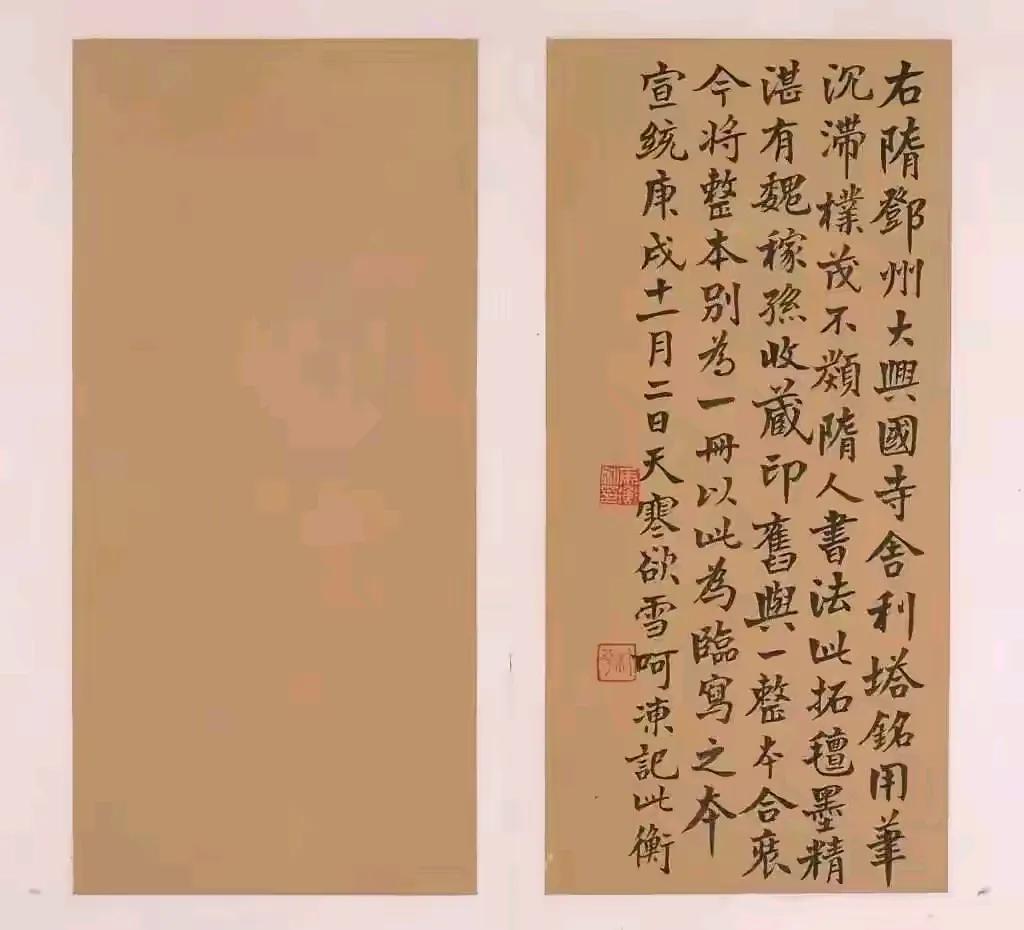 右隋鄧州大興國寺舍利塔銘用筆
沉滯樸茂不類隋人書法此拓氊墨精
湛有魏稼孫收藏印舊與一整本合裝
今將整本別為一冊以此為臨寫之本
宣統庚戌十一月二日天寒欲雪呵凍記此衡